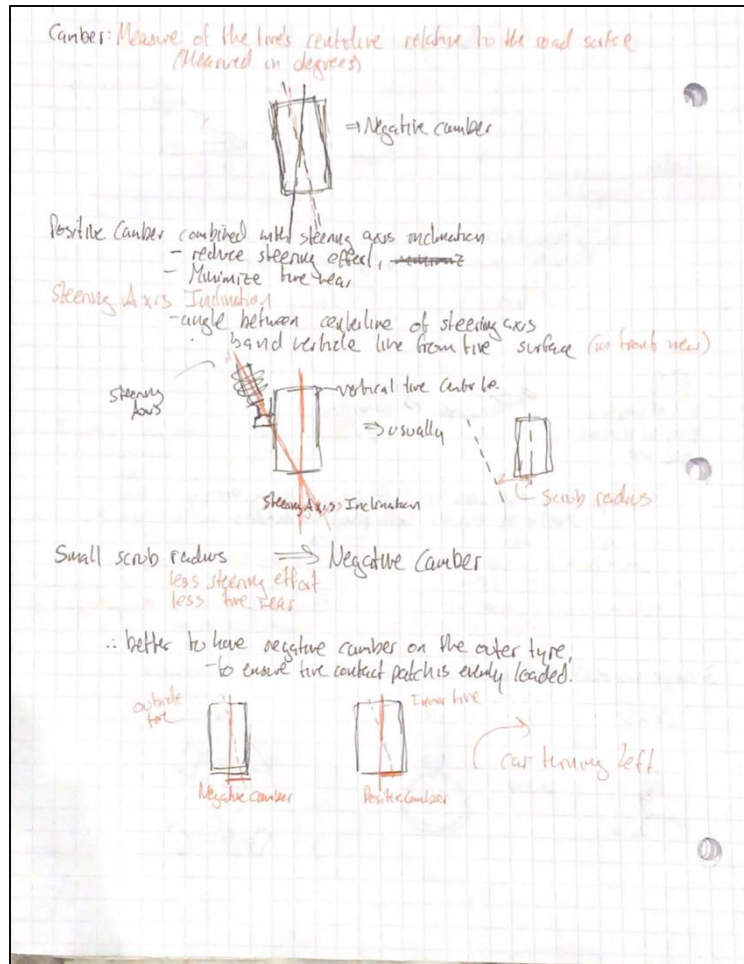 Camber: Measure of the tire's centerline relative to the road surface
(Measured in degrees)
⇒ Negative camber
Positive Camber combined with steering axis inclination
- reduce steering effect,
- Minimize tire wear
Steering Axis Inclination
- angle between centerline of steering axis
band verticle line from tire surface (in front view)
steering
Axis
vertical tire
⇒ usually
scrub radius
Steering Axis Inclination
Small scrub radius ⇒ Negative Camber
less steering effort
less tire wear
∴ better to have negative camber on the outer tyre,
- to ensure tire contact patch is evenly loaded.
outside
tire
Inner tire
car turning left
Negative camber
Positive camber